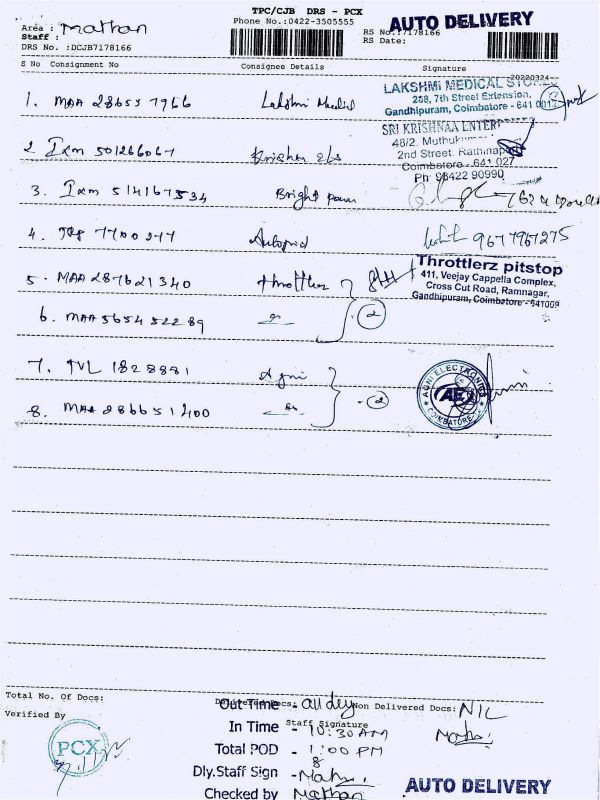 TPC/CJB DRS - PCX
AUTO DELIVERY
Area : Mathan
Staff :
Phone No.:0422-3505555
RS No:7178166
RS Date:
DRS No. :DCJB7178166
S No Consignment No Consignee Details Signature
20220324
1. MAA 286557966 Lakshmi Medical
LAKSHMI MEDICAL STORES
258, 7th Street Extension,
Gandhipuram, Coimbatore - 641 012
2. Ixm 501266067 Krishna
SRI KRISHNAA ENTER
46/2, Muthukumar
2nd Street, Rathinapuri
Coimbatore - 641 027
Ph: 98422 90990
3. Ixm 514167534 Bright
4. 7700277 9677967275
5. MAA 287621340 throttlerz
Throttlerz pitstop
411, Veejay Cappella Complex,
Cross Cut Road, Ramnagar,
Gandhipuram, Coimbatore - 641009
6. MAA 565452289 2
7. TVL 1828881 Agni
AGNI ELECTRONICS
AE
COIMBATORE
8. MAA 286651400 2
Total No. Of Docs: Docs: Non Delivered Docs: NIL
Out Time - all dly
Verified By
Staff Signature
In Time - 10:30 AM
PCX
Total POD - 1:00 PM
8
Dly.Staff Sign -
Checked by Mathan
AUTO DELIVERY